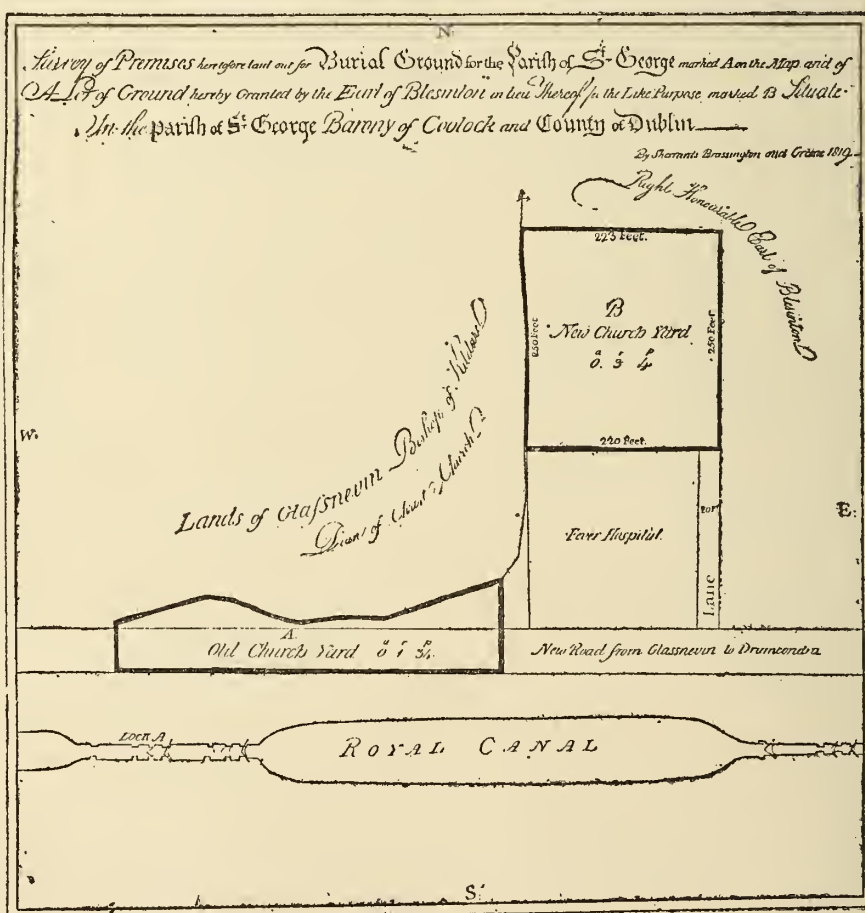 N.
Survey of Premises heretofore laid out for Burial Ground for the Parish of St. George marked A on the Map and of
A Lot of Ground hereby Granted by the Earl of Blesinton in lieu Thereof for the Like Purpose marked B Situate
In the parish of St. George Barony of Coolock and County of Dublin
By Sherrards Brassington and Greene 1819
Right Honourable Earl of Blesinton
223 Feet.
B
New Church Yard
a r p
0. 3 4
250 Feet
250 Feet
220 Feet.
W.
Lands of Glassnevin Bishop of Kildare
Dean of Christ Church
E.
Fever Hospital.
Lane
A.
Old Church Yard 0 1 34.
New Road from Glassnevin to Drumcondra
Lock A
ROYAL CANAL
S.